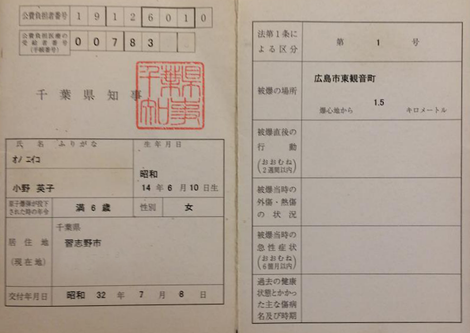 公費負担者番号 1 9 1 2 6 0 1 0
公費負担医療の
受給者番号
(手帳番号)
0 0 7 8 3
千葉県知事
千葉県知事
氏名 ふりがな
生年月日
オノ エイコ
小野 英子
昭和
14 年 6 月 10 日生
原子爆弾が投下
された時の年令
満 6 歳
性別
女
居住地
(現在地)
千葉県
習志野市
交付年月日
昭和 32 年 7 月 8 日
法第1条に
よる区分
第 1 号
被爆の場所
広島市東観音町
爆心地から 1.5 キロメートル
被爆直後の
行動
(おおむね
2週間以内)
被爆当時の
外傷・熱傷
の状況
被爆当時の
急性症状
(おおむね
6箇月以内)
過去の健康
状態とかかっ
た主な傷病
名及び時期